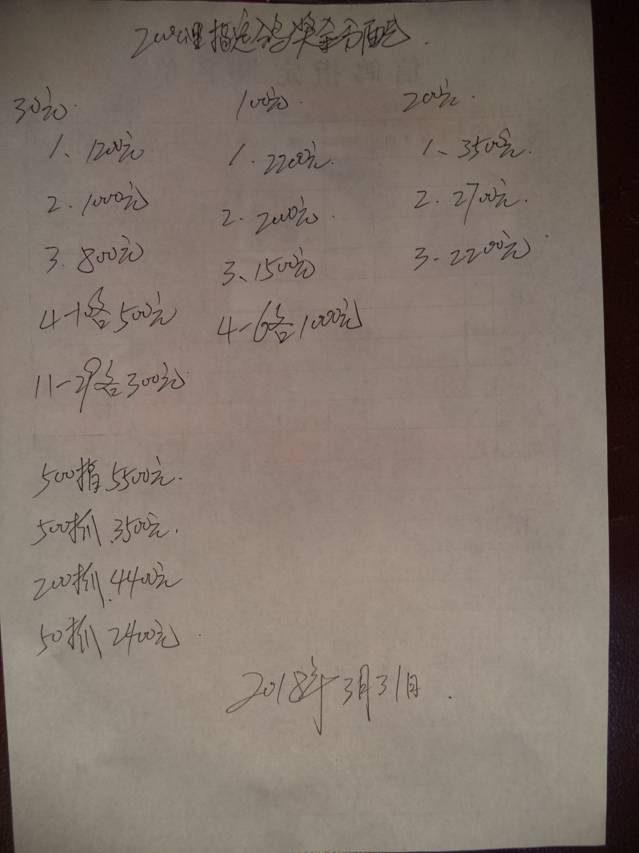 200公里指定鸽奖金分配
30元.
100元.
200元.
1、1200元
1. 2200元.
1、3500元.
2. 1000元
2. 2000元.
2. 2700元.
3. 800元
3、1500元
3. 2200元
4-10名500元
4-6名1000元
11-29名300元
500指5500元.
500抓.3500元.
200抓.4400元
50抓2400元.
2018年3月31日.